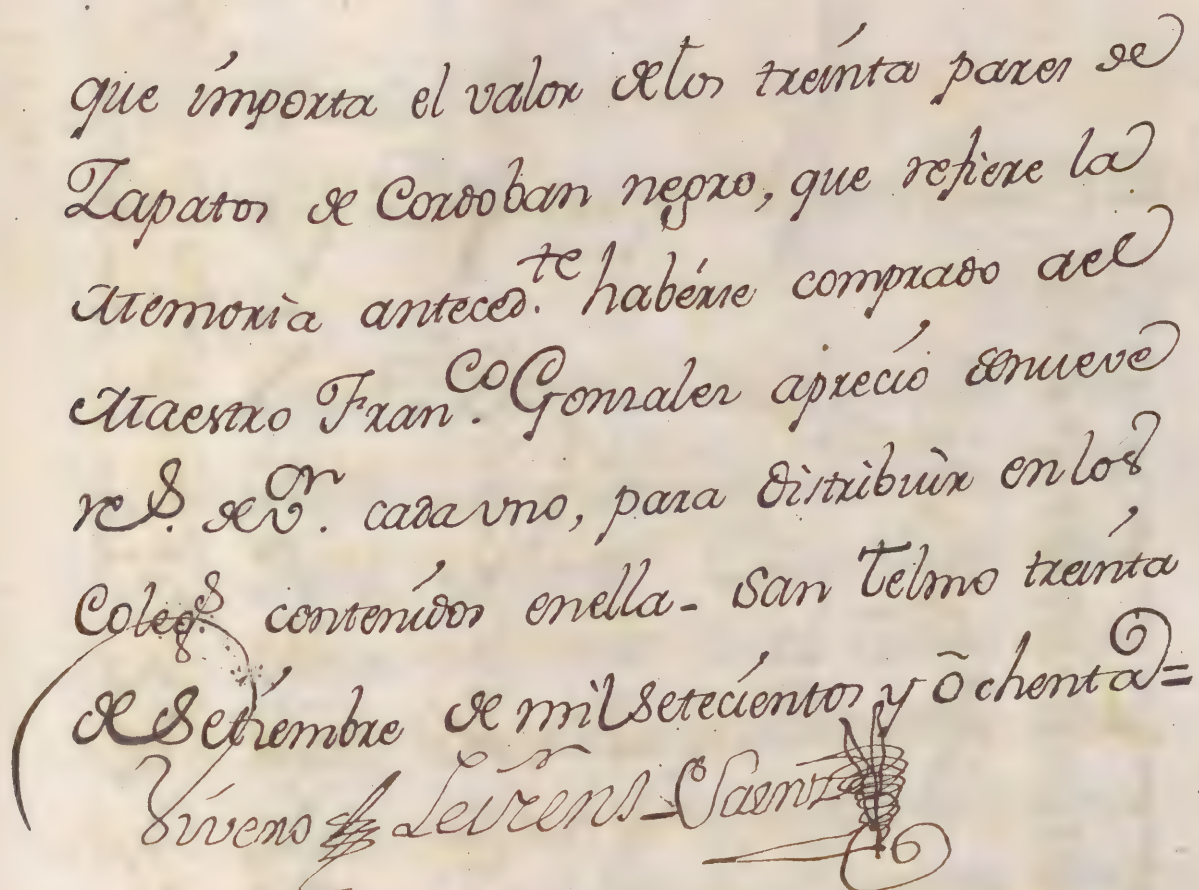 que importa el valor delos treinta pares de
Zapatos de Cordoban negro, que refiere la
Memoria anteced.te habérse comprado ael
Maestro Fran.co Gonzalez aprecio denueve
rs. de v.on cada uno, para distribuir en los
Coleg.s contenidos enella - San Telmo treinta
de Setiembre de mil Setecientos y õchenta =